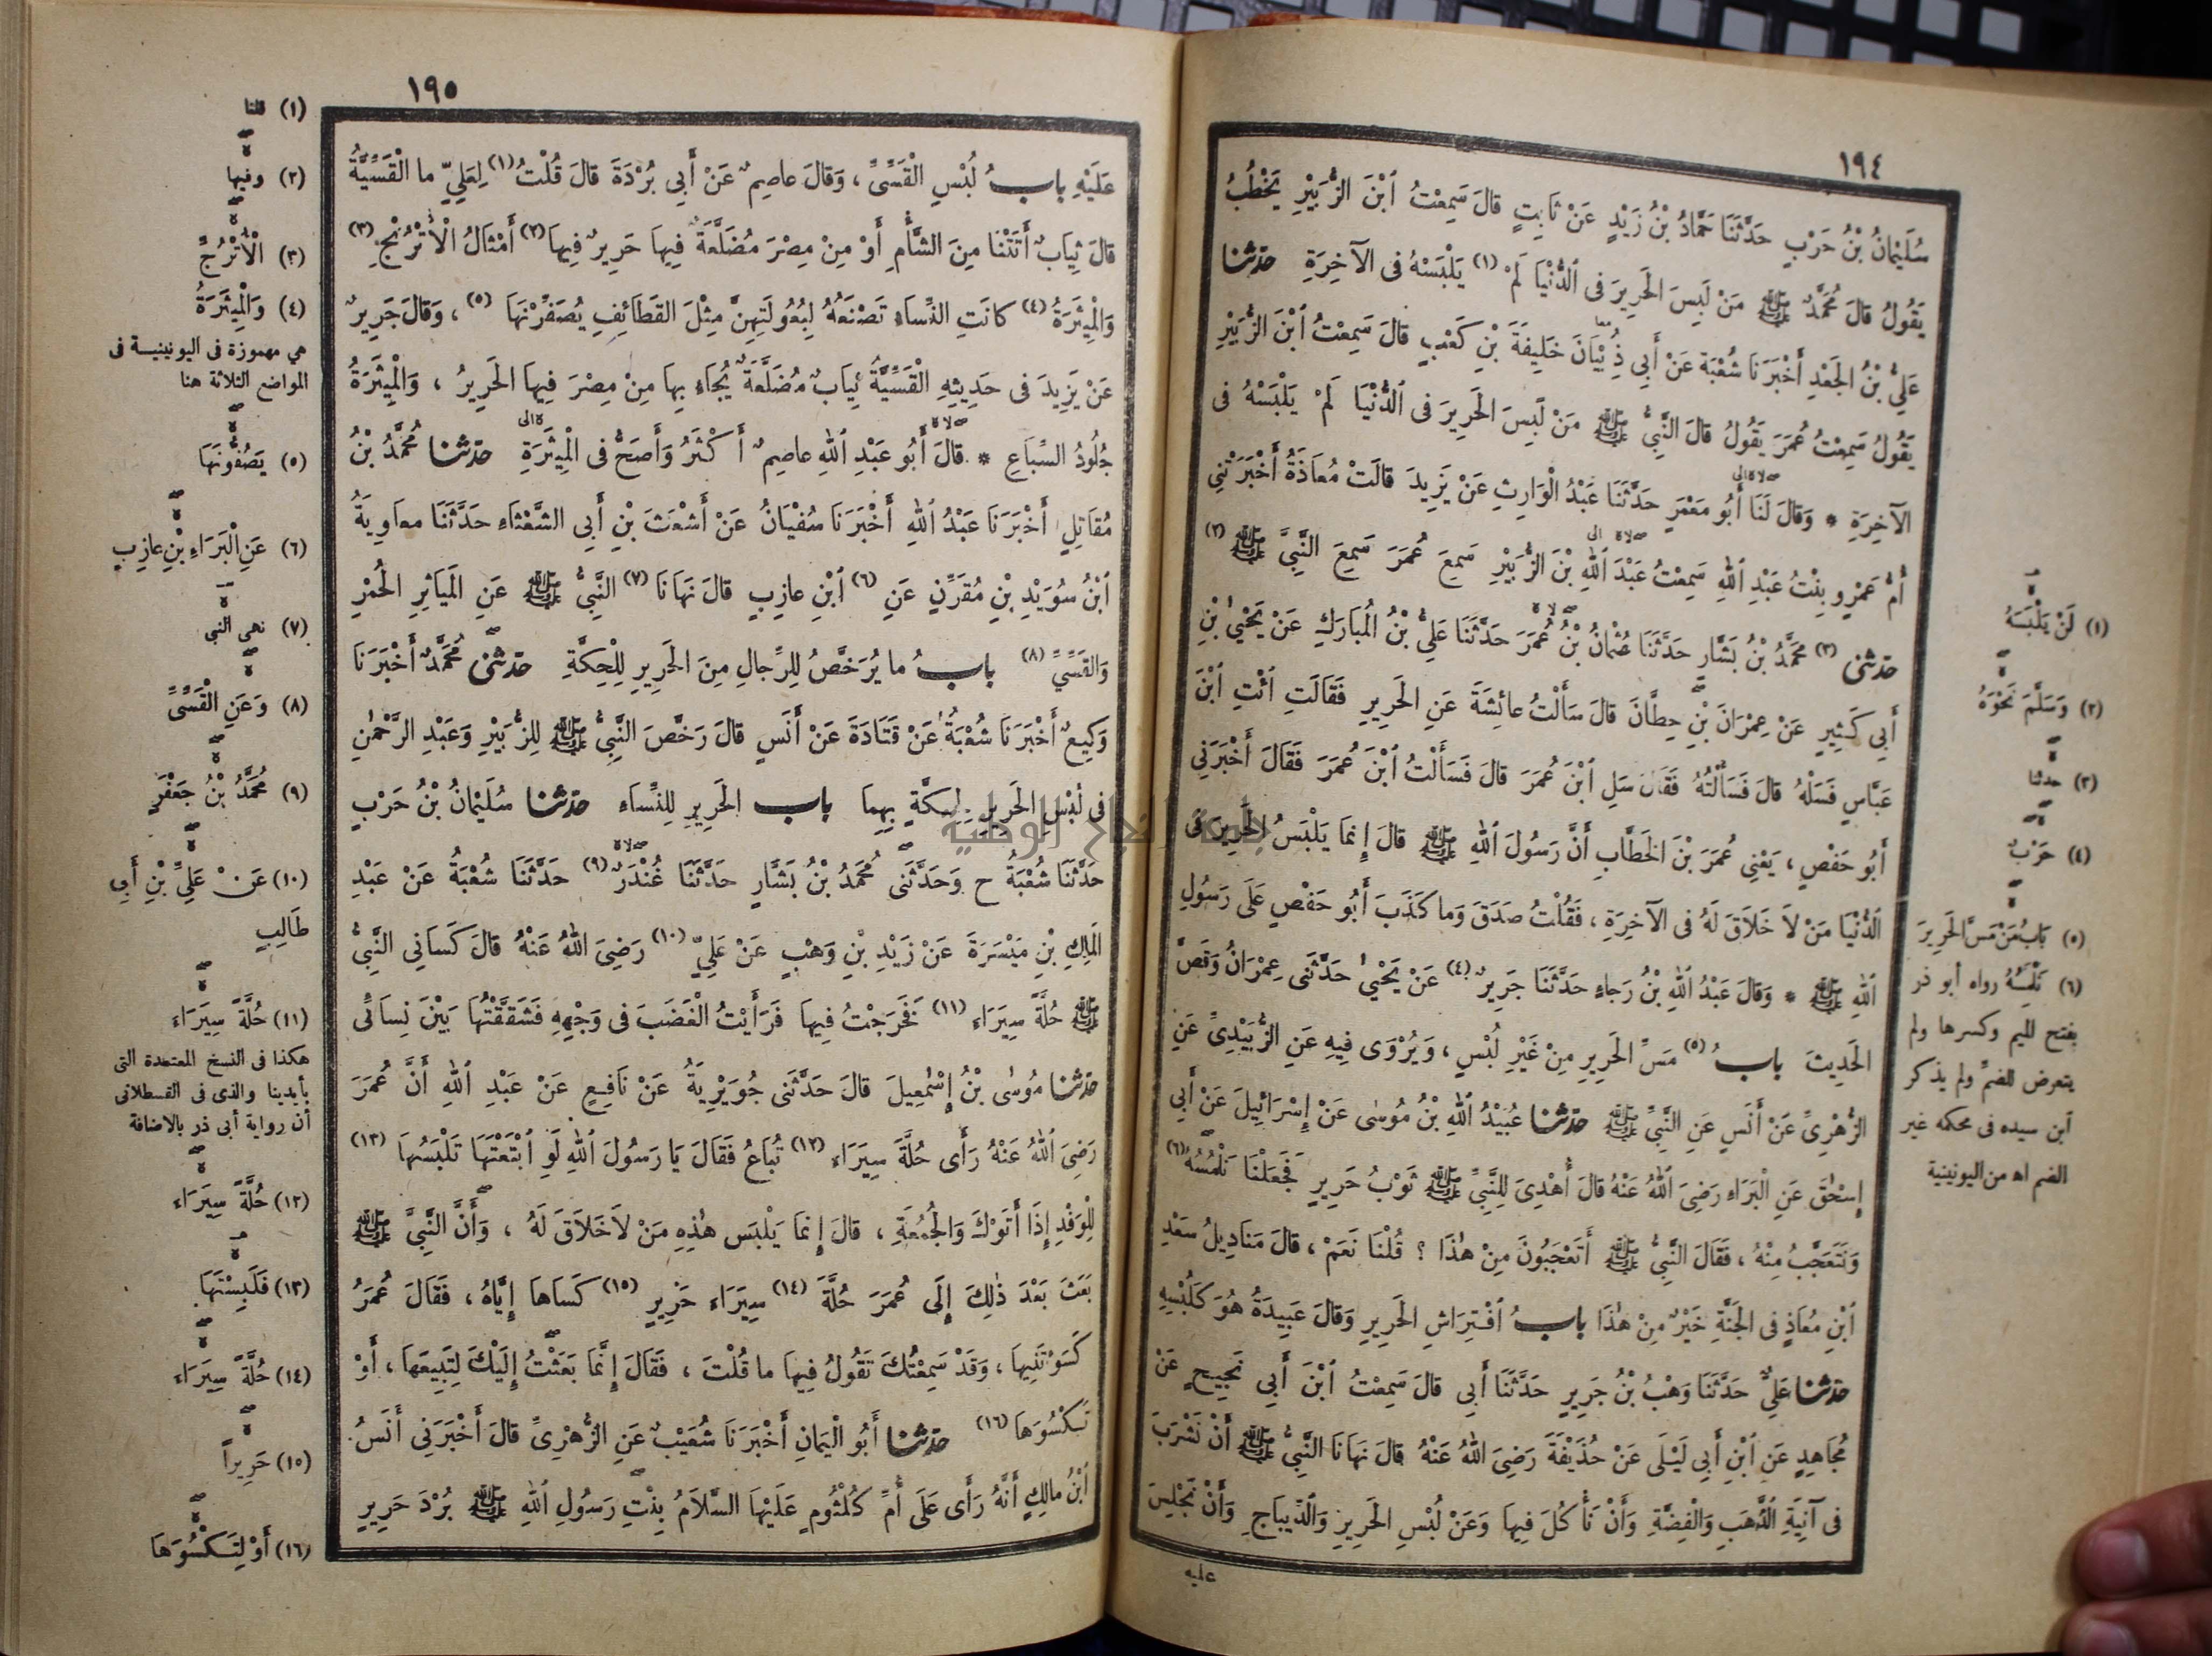 ١٩٤
سُلَيْمَانُ بْنُ حَرْبٍ حَدَّثَنَا حَمَّادُ بْنُ زَيْدٍ عَنْ ثَابِتٍ قالَ سَمِعْتُ ابْنَ الزُّبَيْرِ يَخْطُبُ
يَقُولُ قالَ مُحَمَّدٌ ﷺ مَنْ لَبِسَ الحَرِيرَ فى الدُّنْيَا لَمْ (١) يَلْبَسْهُ فى الآخِرَةِ حدثنا
عَلِيُّ بْنُ الجَعْدِ أَخْبَرَنَا شُعْبَةُ عَنْ أَبِي ذُِبْيَانَ خَلِيفَةَ بْنِ كَعْبٍ قالَ سَمِعْتُ ابْنَ الزُّبَيْرِ
يَقُولُ سَمِعْتُ عُمَرَ يَقُولُ قالَ النَّبِيُّ ﷺ مَنْ لَبِسَ الحَرِيرَ فى الدُّنْيَا لَمْ يَلْبَسْهُ فى
الآخِرَةِ * وَقالَ لَنَا أَبُو مَعْمَرٍ حَدَّثَنَا عَبْدُ الْوَارِثِ عَنْ يَزِيدَ قالَتْ مُعَاذَةُ أَخْبَرَتْنِي
أُمُّ عَمْرٍو بِنْتُ عَبْدِ اللهِ سَمِعْتُ عَبْدَ اللهِ بْنَ الزُّبَيْرِ سَمِعَ عُمَرَ سَمِعَ النَّبِيَّ ﷺ (٢)
حدثنى (٣) مُحَمَّدُ بْنُ بَشَّارٍ حَدَّثَنَا عُثْمانُ بْنُ عُمَرَ حَدَّثَنَا عَلِيُّ بْنُ الْمُبَارَكِ عَنْ يَحْيَى بْنِ
أَبِي كَثِيرٍ عَنْ عِمْرَانَ بْنِ حِطَّانَ قالَ سَأَلْتُ عائِشَةَ عَنِ الحَرِيرِ فَقَالَتِ ائْتِ ابْنَ
عَبَّاسٍ فَسَلْهُ قالَ فَسَأَلْتُهُ فَقَالَ سَلِ ابْنَ عُمَرَ قالَ فَسَأَلْتُ ابْنَ عُمَرَ فَقَالَ أَخْبَرَنِي
أَبُو حَفْصٍ ، يَعْنِي عُمَرَ بْنَ الخَطَّابِ أَنَّ رَسُولَ اللهِ ﷺ قالَ إِنمَا يَلْبَسُ الحَرِيرَ فى
الدُّنْيَا مَنْ لاَ خَلاَقَ لَهُ فى الآخِرَةِ ، فَقُلْتُ صَدَقَ وَما كَذَبَ أَبُو حَفْصٍ عَلَى رَسُولِ
اللهِ ﷺ * وَقالَ عَبْدُ اللهِ بْنُ رَجاءٍ حَدَّثَنَا جَرِيرٌ (٤) عَنْ يَحْيَى حَدَّثَنِى عِمْرَانُ وَقَصَّ
الحَدِيثَ بابُ (٥) مَسِّ الحَرِيرِ مِنْ غَيْرِ لُبْسٍ ، وَيُرْوَى فِيهِ عَنِ الزُّبَيْدِىِّ عَنِ
الزُّهْرِىِّ عَنْ أَنَسٍ عَنِ النَّبِيِّ ﷺ حدثنا عُبَيْدُ اللهِ بْنُ مُوسَى عَنْ إِسْرَائِيلَ عَنْ أَبِي
إِسْحٰقَ عَنِ الْبَرَاءِ رَضِيَ اللهُ عَنْهُ قالَ أُهْدِىَ لِلنَّبِيِّ ﷺ ثَوْبُ حَرِيرٍ فَجَعَلْنَا نَلْمُسُهُ (٦)
وَنَتَعَجَّبُ مِنْهُ ، فَقَالَ النَّبِيُّ ﷺ أَتَعْجَبُونَ مِنْ هٰذَا ؟ قُلْنَا نَعَمْ ، قالَ مَنَادِيلُ سَعْدِ
ابْنِ مُعَاذٍ فى الجَنَّةِ خَيْرٌ مِنْ هٰذَا بابُ افْتِرَاشِ الحَرِيرِ وَقالَ عَبِيدَةُ هُوَ كَلُبْسِهِ
حدثنا عَلِيٌّ حَدَّثَنَا وَهْبُ بْنُ جَرِيرٍ حَدَّثَنَا أَبِي قالَ سَمِعْتُ ابْنَ أَبِي نَجِيحٍ عَنْ
مُجَاهِدٍ عَنِ ابْنِ أَبِي لَيْلَى عَنْ حُذَيْفَةَ رَضِيَ اللهُ عَنْهُ قالَ نَهَانَا النَّبِيُّ ﷺ أَنْ نَشْرَبَ
فى آنِيَةِ الذَّهَبِ وَالْفِضَّةِ وَأَنْ نَأْكُلَ فِيهَا وَعَنْ لُبْسِ الحَرِيرِ وَالدِّيبَاجِ وَأَنْ نَجْلِسَ
عليه
(١) لَنْ يَلْبَسَهُ
(٢) وَسَلَّمَ نَحْوَهُ
(٣) حدثنا
(٤) حَرْبٌ
(٥) بَابُ مَنْ مَسَّ الحَرِيرَ
(٦) نَلْمِسُهُ رواه أبو ذر
بفتح الميم وكسرها ولم
يتعرض للضم ولم يذكر
ابن سيده فى محكمه غير
الضم اه من اليونينية
١٩٥
عَلَيْهِ بابُ لُبْسِ الْقَسِّىِّ ، وَقالَ عاصِمٌ عَنْ أَبِي بُرْدَةَ قالَ قُلْتُ (١) لِعَلِيٍّ ما الْقَسِّيَّةُ
قالَ ثِيَابٌ أَتَتْنَا مِنَ الشَّأْمِ أَوْ مِنْ مِصْرَ مُضَلَّعَةٌ فِيهَا حَرِيرٌ فِيهَا (٢) أَمْثَالُ الْأُتْرُنْجِ (٣)
وَالْمِيثَرَةُ (٤) كانَتِ النِّسَاءُ تَصْنَعُهُ لِبُعُولَتِهِنَّ مِثْلَ القَطَائِفِ يُصَفِّرْنَهَا (٥) ، وَقالَ جَرِيرٌ
عَنْ يَزِيدَ فى حَدِيثِهِ الْقَسِّيَّةُ ثِيَابٌ مُضَلَّعَةٌ يُجَاءُ بِهَا مِنْ مِصْرَ فِيهَا الحَرِيرُ ، وَالْمِيثَرَةُ
جُلُودُ السِّبَاعِ * قالَ أَبُو عَبْدِ اللهِ عاصِمٌ أَكْثَرُ وَأَصَحُّ فى الْمِيثَرَةِ حدثنا مُحَمَّدُ بْنُ
مُقَاتِلٍ أَخْبَرَنَا عَبْدُ اللهِ أَخْبَرَنَا سُفْيَانُ عَنْ أَشْعَثَ بْنِ أَبِي الشَّعْثَاءِ حَدَّثَنَا معاوِيَةُ
ابْنُ سُوَيْدِ بْنِ مُقَرِّنٍ عَنِ (٦) ابْنِ عازِبٍ قالَ نَهَانَا (٧) النَّبِيُّ ﷺ عَنِ المَيَاثِرِ الحُمْرِ
وَالقَسِّيِّ (٨) بابُ ما يُرَخَّصُ لِلرِّجالِ مِنَ الحَرِيرِ لِلْحِكَّةِ حدثنى مُحَمَّدٌ أَخْبَرَنَا
وَكِيعٌ أَخْبَرَنَا شُعْبَةُ عَنْ قَتَادَةَ عَنْ أَنَسٍ قالَ رَخَّصَ النَّبِيُّ ﷺ لِلزُّبَيْرِ وَعَبْدِ الرَّحْمٰنِ
فى لُبْسِ الحَرِيرِ لِحِكَّةٍ بِهِمَا باب الحَرِيرِ لِلنِّسَاءِ حدثنا سُلَيْمَانُ بْنُ حَرْبٍ
حَدَّثَنَا شُعْبَةُ ح وَحَدَّثَنى مُحَمَّدُ بْنُ بَشَّارٍ حَدَّثَنَا غُنْدَرٌ (٩) حَدَّثَنَا شُعْبَةُ عَنْ عَبْدِ
المَلِكِ بْنِ مَيْسَرَةَ عَنْ زَيْدِ بْنِ وَهْبٍ عَنْ عَلِيٍّ (١٠) رَضِيَ اللهُ عَنْهُ قالَ كَسَانِى النَّبِيُّ
ﷺ حُلَّةً سِيَرَاءَ (١١) فَخَرَجْتُ فِيهَا فَرَأَيْتُ الْغَضَبَ فى وَجْهِهِ فَشَقَقْتُهَا بَيْنَ نِسَائى
حدثنا مُوسَى بْنُ إِسْمٰعِيلَ قالَ حَدَّثَنى جُوَيْرِيَةُ عَنْ نَافِعٍ عَنْ عَبْدِ اللهِ أَنَّ عُمَرَ
رَضِيَ اللهُ عَنْهُ رَأَى حُلَّةَ سِيَرَاءَ (١٢) تُبَاعُ فَقَالَ يَا رَسُولَ اللهِ لَوِ ابْتَعْتَهَا تَلْبَسُهَا (١٣)
لِلْوَفْدِ إِذَا أَتَوْكَ وَالجُمُعَةِ ، قالَ إِنمَا يَلْبَس هٰذِهِ مَنْ لاَ خَلاَقَ لَهُ ، وَأَنَّ النَّبِيَّ ﷺ
بَعَثَ بَعْدَ ذٰلِكَ إِلَى عُمَرَ حُلَّةَ (١٤) سِيَرَاءَ حَرِيرٍ (١٥) كَسَاهَا إِيَّاهُ ، فَقَالَ عُمَرُ
كَسَوْتَنِيهَا ، وَقَدْ سَمِعْتُكَ تَقُولُ فِيهَا ما قُلْتَ ، فَقَالَ إِنَّمَا بَعَثْتُ إِلَيْكَ لِتَبِيعَهَا ، أَوْ
تَكْسُوَهَا (١٦) حدثنا أَبُو الْيَمَانِ أَخْبَرَنَا شُعَيْبٌ عَنِ الزُّهْرِىِّ قالَ أَخْبَرَنِى أَنَسُ
ابْنُ مالِكٍ أَنَّهُ رَأَى عَلَى أُمِّ كُلْثُومٍ عَلَيْهَا السَّلاَمُ بِنْتِ رَسُولِ اللهِ ﷺ بُرْدَ حَرِيرٍ
(١) قلنا
(٢) وفيها
(٣) الْأُتْرُجِّ
(٤) وَالْمِئْثَرَةُ
هي مهموزة فى اليونينية فى
المواضع الثلاثة هنا
(٥) يَصُفُّونَهَا
(٦) عَنِ الْبَرَاءِ بْنِ عازِبٍ
(٧) نهى النبى
(٨) وَعَنِ الْقَسِّىِّ
(٩) مُحَمَّدُ بْنُ جَعْفَرٍ
(١٠) عَنْ عَلِيِّ بْنِ أَبِي
طَالِبٍ
(١١) حُلَّةً سِيَرَاءَ
هكذا فى النسخ المعتمدة التى
بأيدينا والذى فى القسطلانى
أن رواية أبى ذر بالاضافة
(١٢) حُلَّةً سِيَرَاءَ
(١٣) فَلَبِسْتَهَا
(١٤) حُلَّةً سِيَرَاءَ
(١٥) حَرِيراً
(١٦) أَوْ لِتَكْسُوَهَا